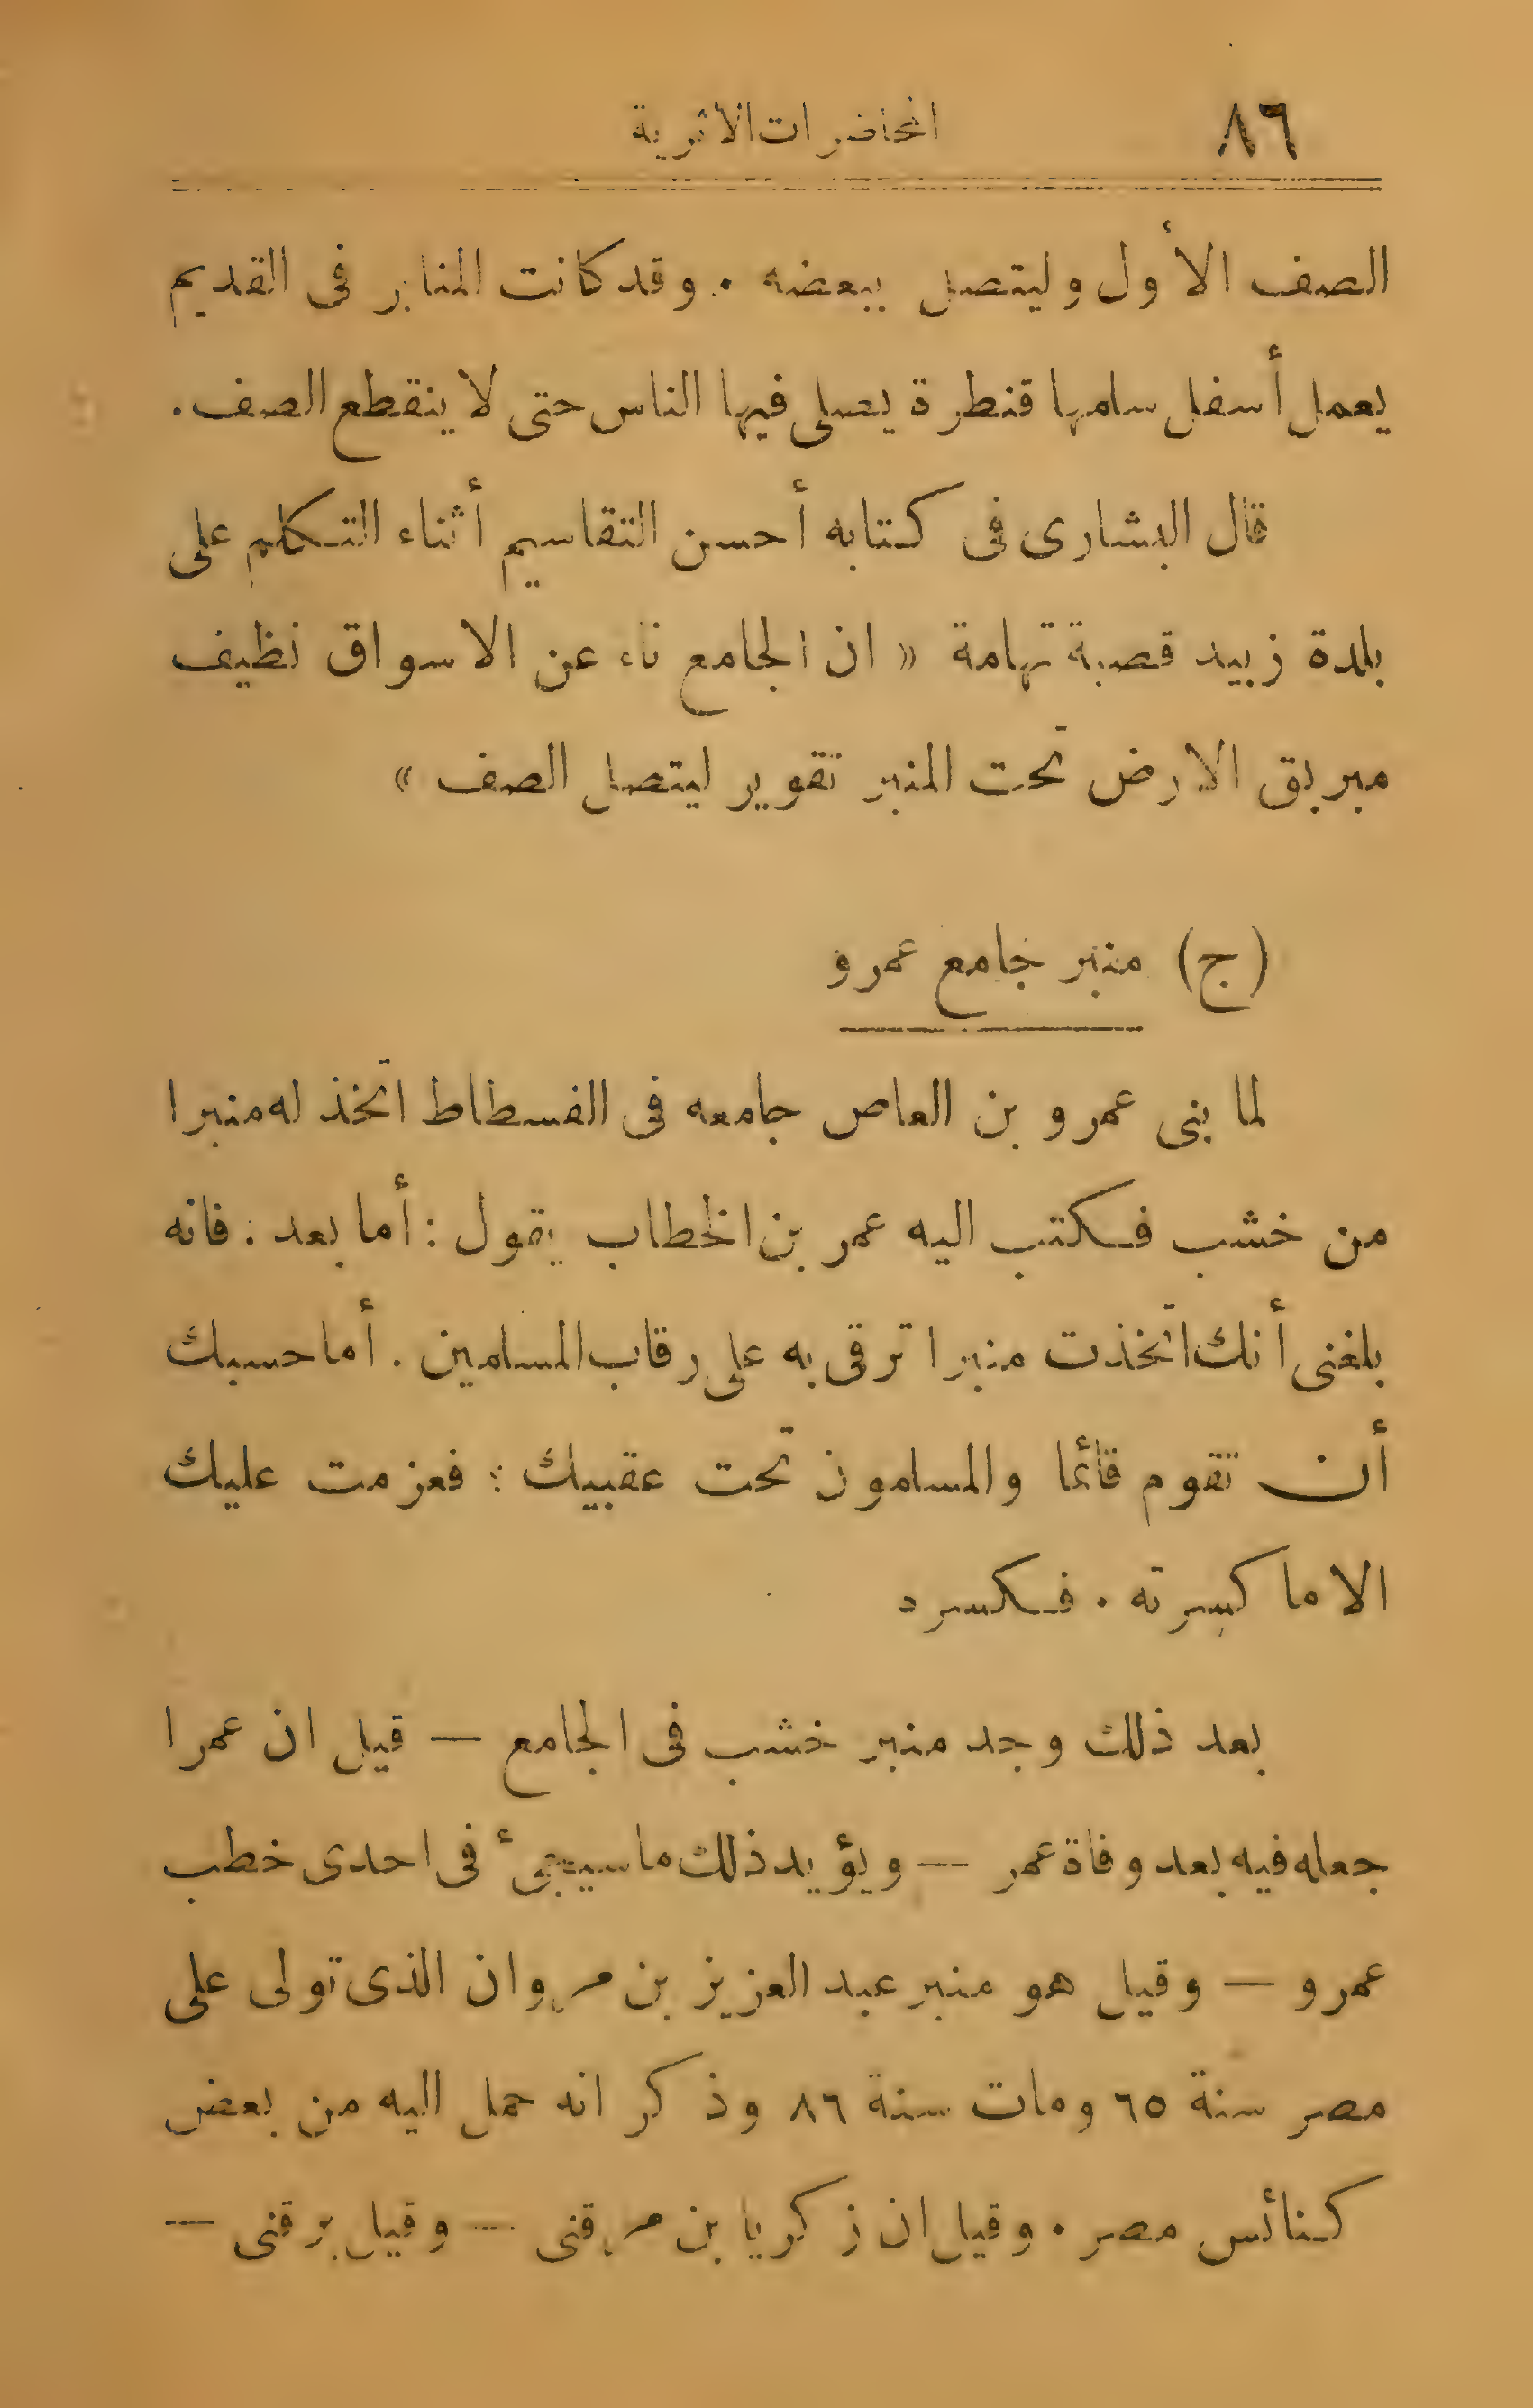 ٨٦
المحاضرات الاثرية
الصف الأول وليتصل ببعضه . وقد كانت المنابر فى القديم
يعمل أسفل سلمها قنطرة يصلى فيها الناس حتى لا ينقطع الصف .
قال البشارى فى كتابه أحسن التقاسيم أثناء التكلم على
بلدة زبيد قصبة تهامة « ان الجامع ناء عن الاسواق نظيف
مبربق الارض تحت المنبر تقوير ليتصل الصف »
(ج) منبر جامع عمرو
لما بنى عمرو بن العاص جامعه فى الفسطاط اتخذ له منبرا
من خشب فكتب اليه عمر بن الخطاب يقول : أما بعد : فانه
بلغنى أنك اتخذت منبرا ترقى به على رقاب المسلمين . أما حسبك
أن تقوم قائما والمسلمون تحت عقبيك : فعزمت عليك
الا ما كسرته . فكسره
بعد ذلك وجد منبر خشب فى الجامع — قيل ان عمرا
جعله فيه بعد وفاة عمر — ويؤيد ذلك ما سيجىء فى احدى خطب
عمرو — وقيل هو منبر عبد العزيز بن مروان الذى تولى على
مصر سنة ٦٥ ومات سنة ٨٦ وذكر انه حمل اليه من بعض
كنائس مصر . وقيل ان زكريا بن مرقنى — وقيل برقنى —